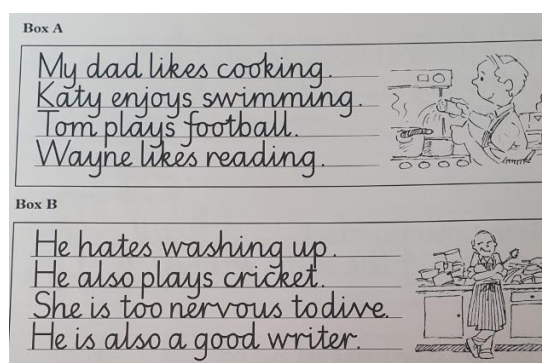 Box A
My dad likes cooking.
Katy enjoys swimming.
Tom plays football.
Wayne likes reading.
Box B
He hates washing up.
He also plays cricket.
She is too nervous to dive.
He is also a good writer.